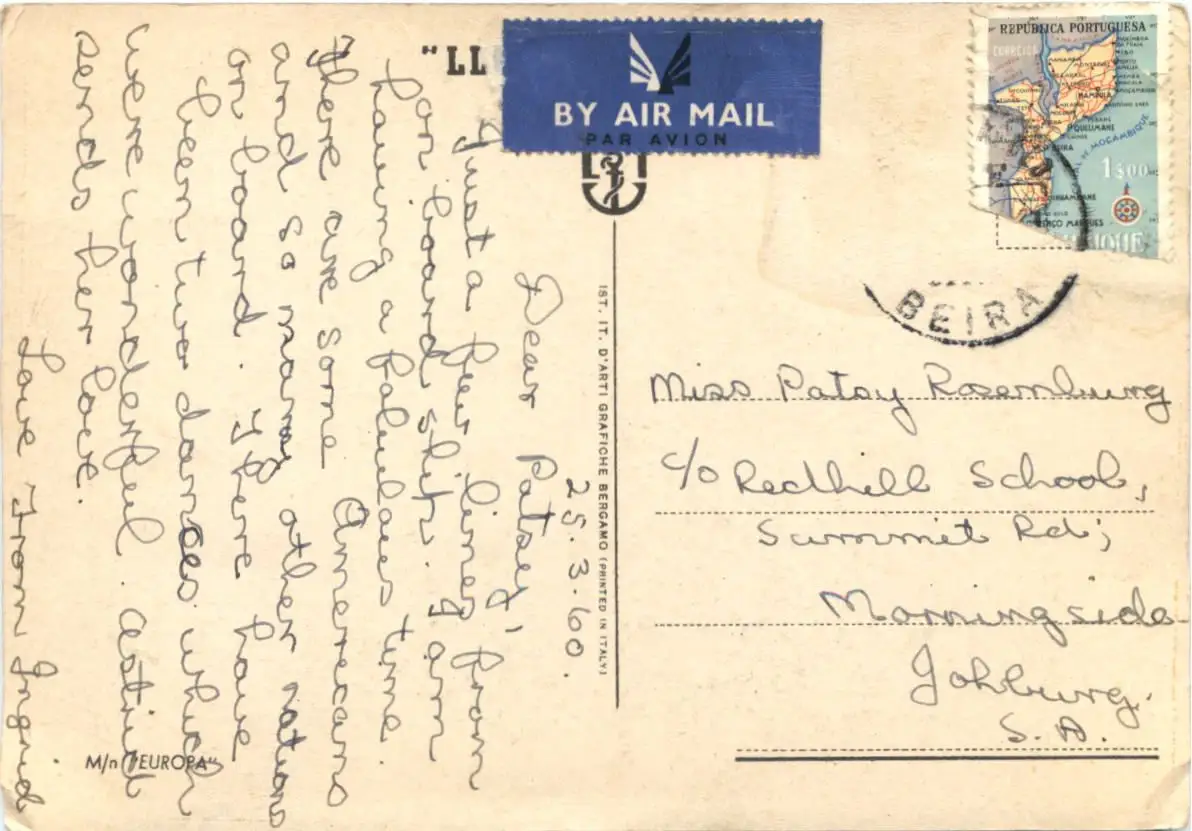 "LL
BY AIR MAIL
PAR AVION
REPÚBLICA PORTUGUESA
CORREIOS
NAMPULA
QUELIMANE
BEIRA
CANAL DE MOÇAMBIQUE
1$00
INHAMBANE
MARQUES
BEIRA
25.3.60.
Dear Patsy,
Just a few lines from
on board ship. I am
having a fabulous time.
There are some Americans
and so many other nations
on board. There have
been two dances which
were wonderful. Astrid
sends her love.
Love From Ingrid
IST. IT. D'ARTI GRAFICHE BERGAMO (PRINTED IN ITALY)
Miss Patsy Rosemburg
c/o Redhill School,
Summit Rd;
Morningside
Johburg.
S.A.
M/n "EUROPA"